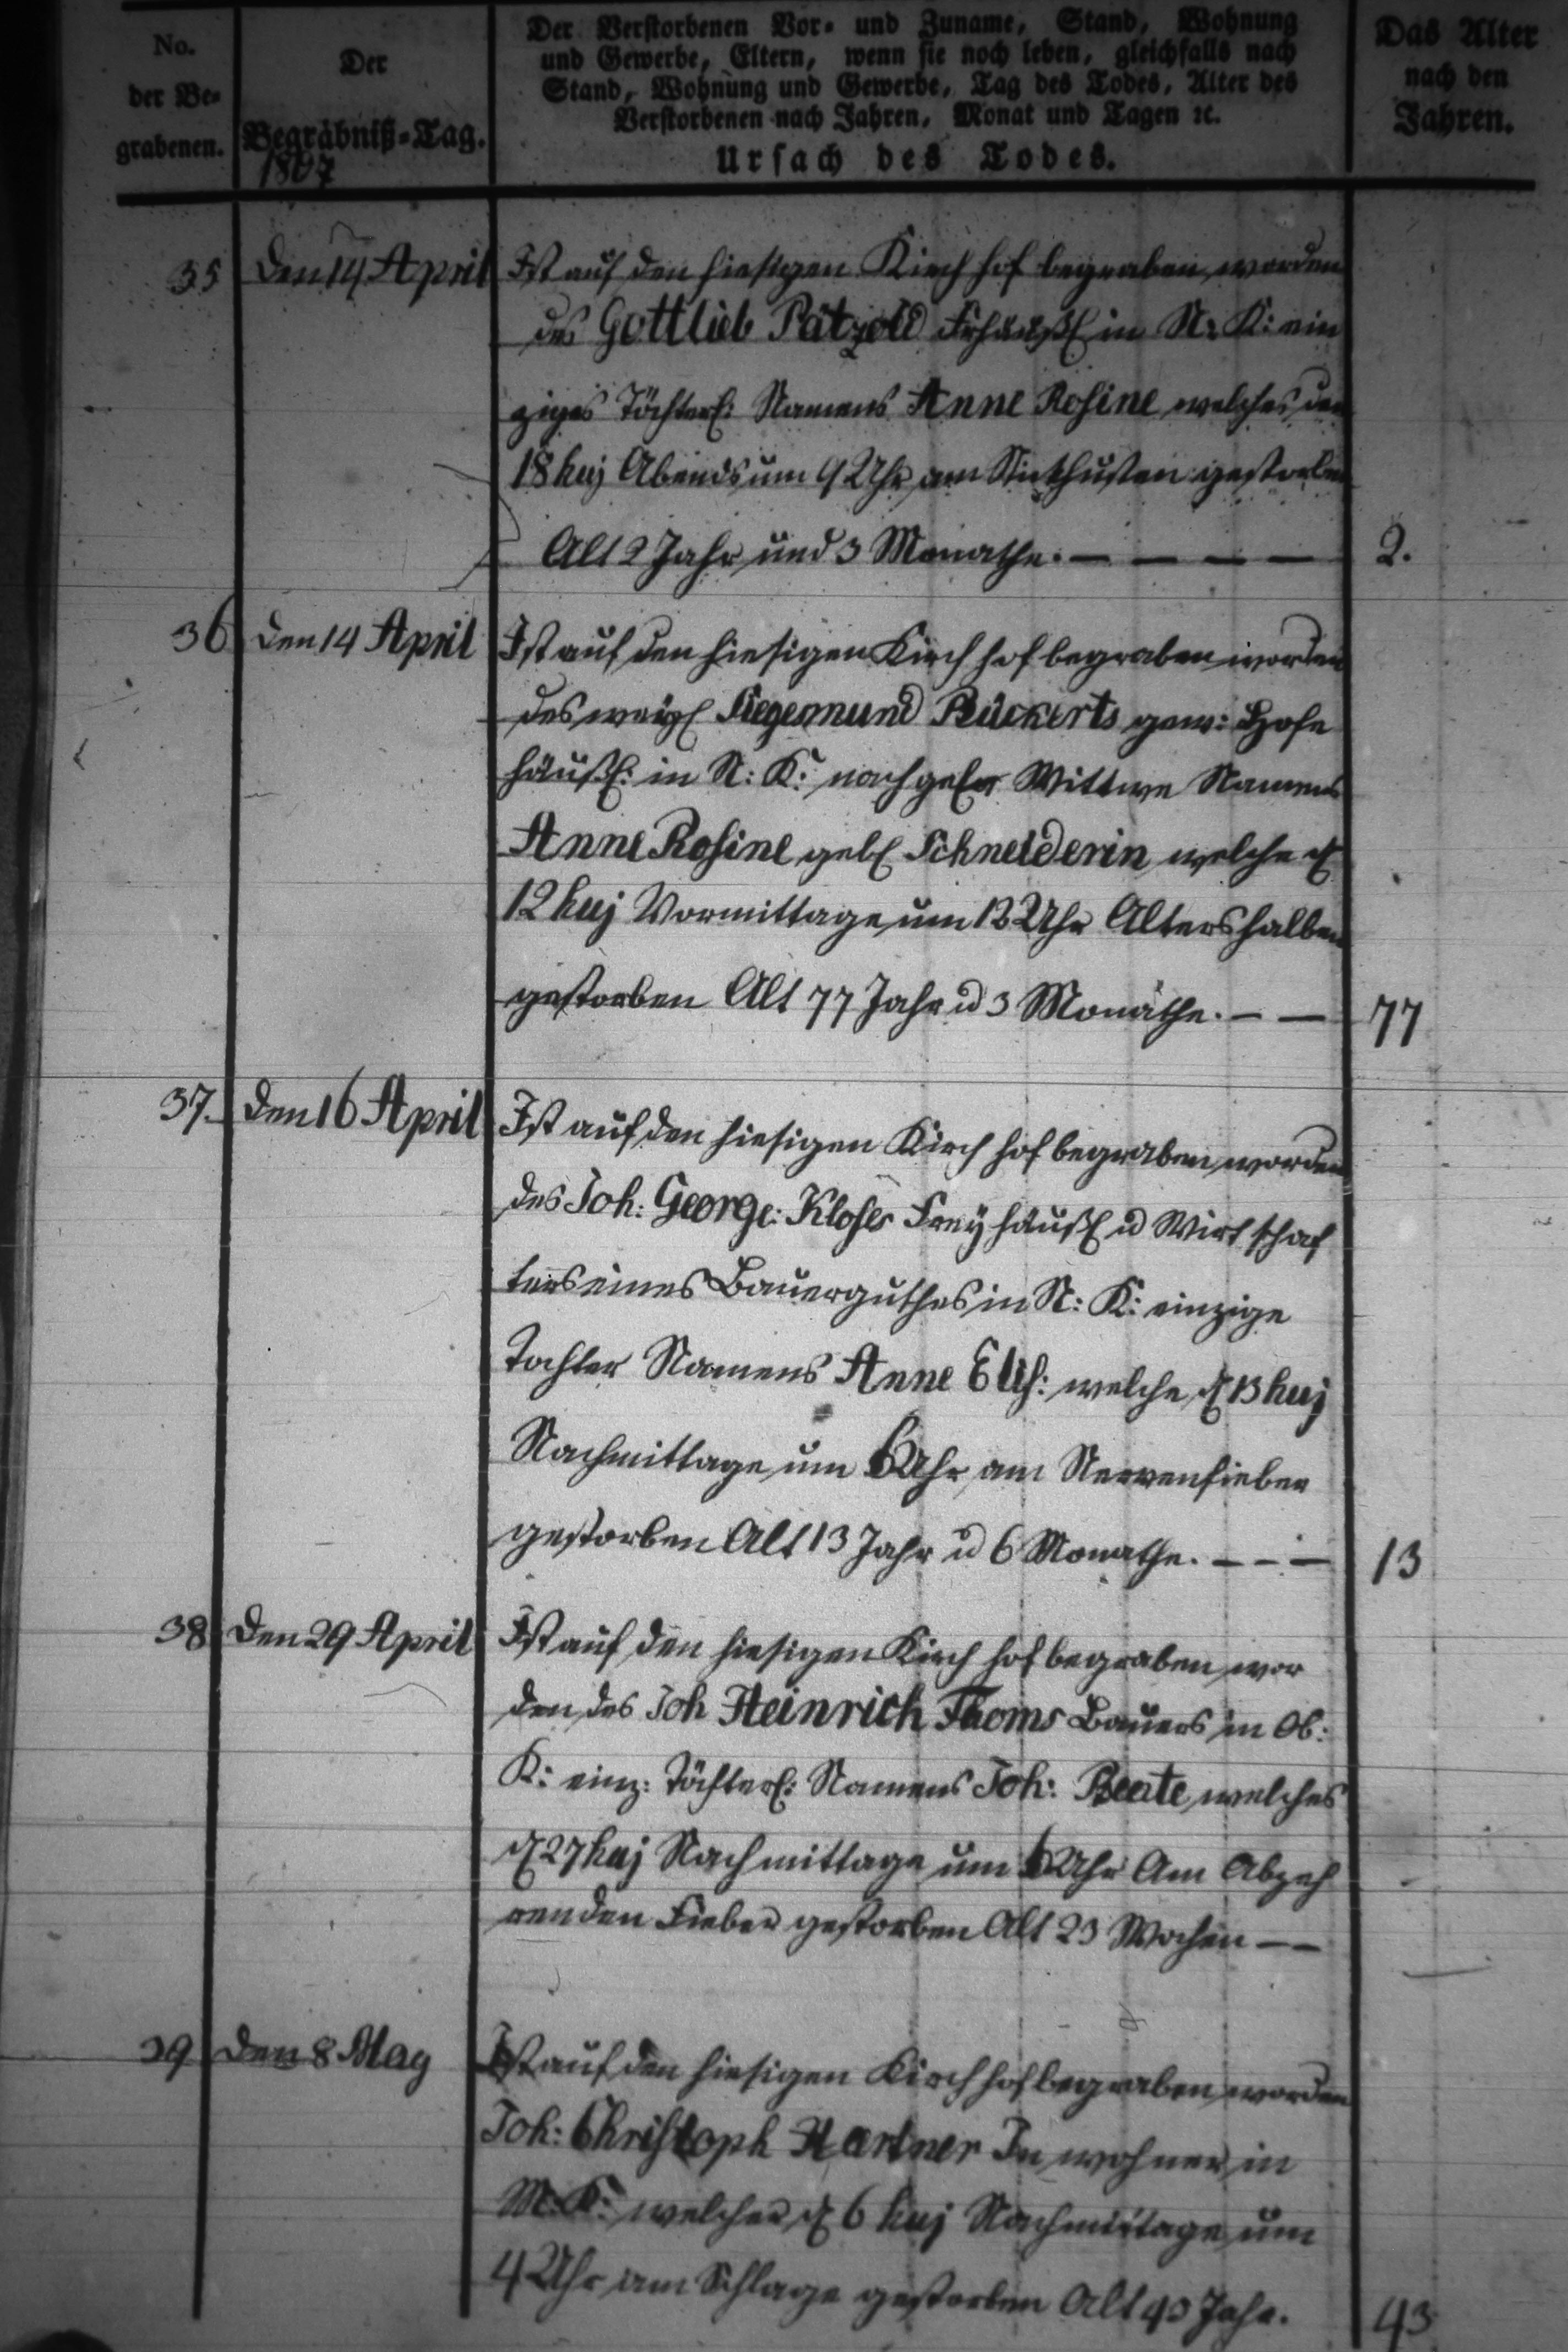 No.
der Be=
grabenen.
Der
Begräbniß=Tag.
1807
Der Verstorbenen Vor= und Zuname, Stand, Wohnung
und Gewerbe, Eltern, wenn sie noch leben, gleichfalls nach
Stand, Wohnung und Gewerbe, Tag des Todes, Alter des
Verstorbenen nach Jahren, Monat und Tagen ꝛc.
Ursach des Todes.
Das Alter
nach den
Jahren.
35 Den 14 April Ist auf den hiesigen Kirch hof begraben worden
des Gottlieb Pätzold in N: K: ein
ziges Töchterl: Namens Anne Rosine welches den
18 huj Abends um 9 Uhr am Stickhusten gestorben
Alt 2 Jahr und 3 Monathe. — — — — 2.
36 Den 14 April Ist auf den hiesigen Kirch hof begraben worden
des weyl Siegemund Rückerts gew: Hofe
häußl: in N: K: nachgel Wittwe Namens
Anne Rosine geb Schneiderin welche d
12 huj Vormittage um 12 Uhr Altershalben
gestorben Alt 77 Jahr u 3 Monathe. — — 77
37. Den 16 April Ist auf den hiesigen Kirch hof begraben worden
des Joh: George: Kloses Frey häußl u Wirt schaf
ters eines Bauerguthes in N: K: einzige
Tochter Namens Anne Elis: welche d 13 huj
Nachmittage um 6 Uhr am Nervenfieber
gestorben Alt 13 Jahr u 6 Monathe. — — — 13
38 Den 29 April Ist auf den hiesigen Kirch hof begraben wor
den des Joh Heinrich Thoms Bauers in Ob:
K: einz: Töchterl: Namens Joh: Beate welches
d 27 huj Nachmittage um 6 Uhr Am Abzeh
renden Fieber gestorben Alt 23 Wochen — —
39 Den 8 May Ist auf den hiesigen Kirch hof begraben worden
Joh: Christoph Hartner In wohner in
M: K: welcher d 6 huj Nachmittage um
4 Uhr am Schlage gestorben Alt 43 Jahr. 43